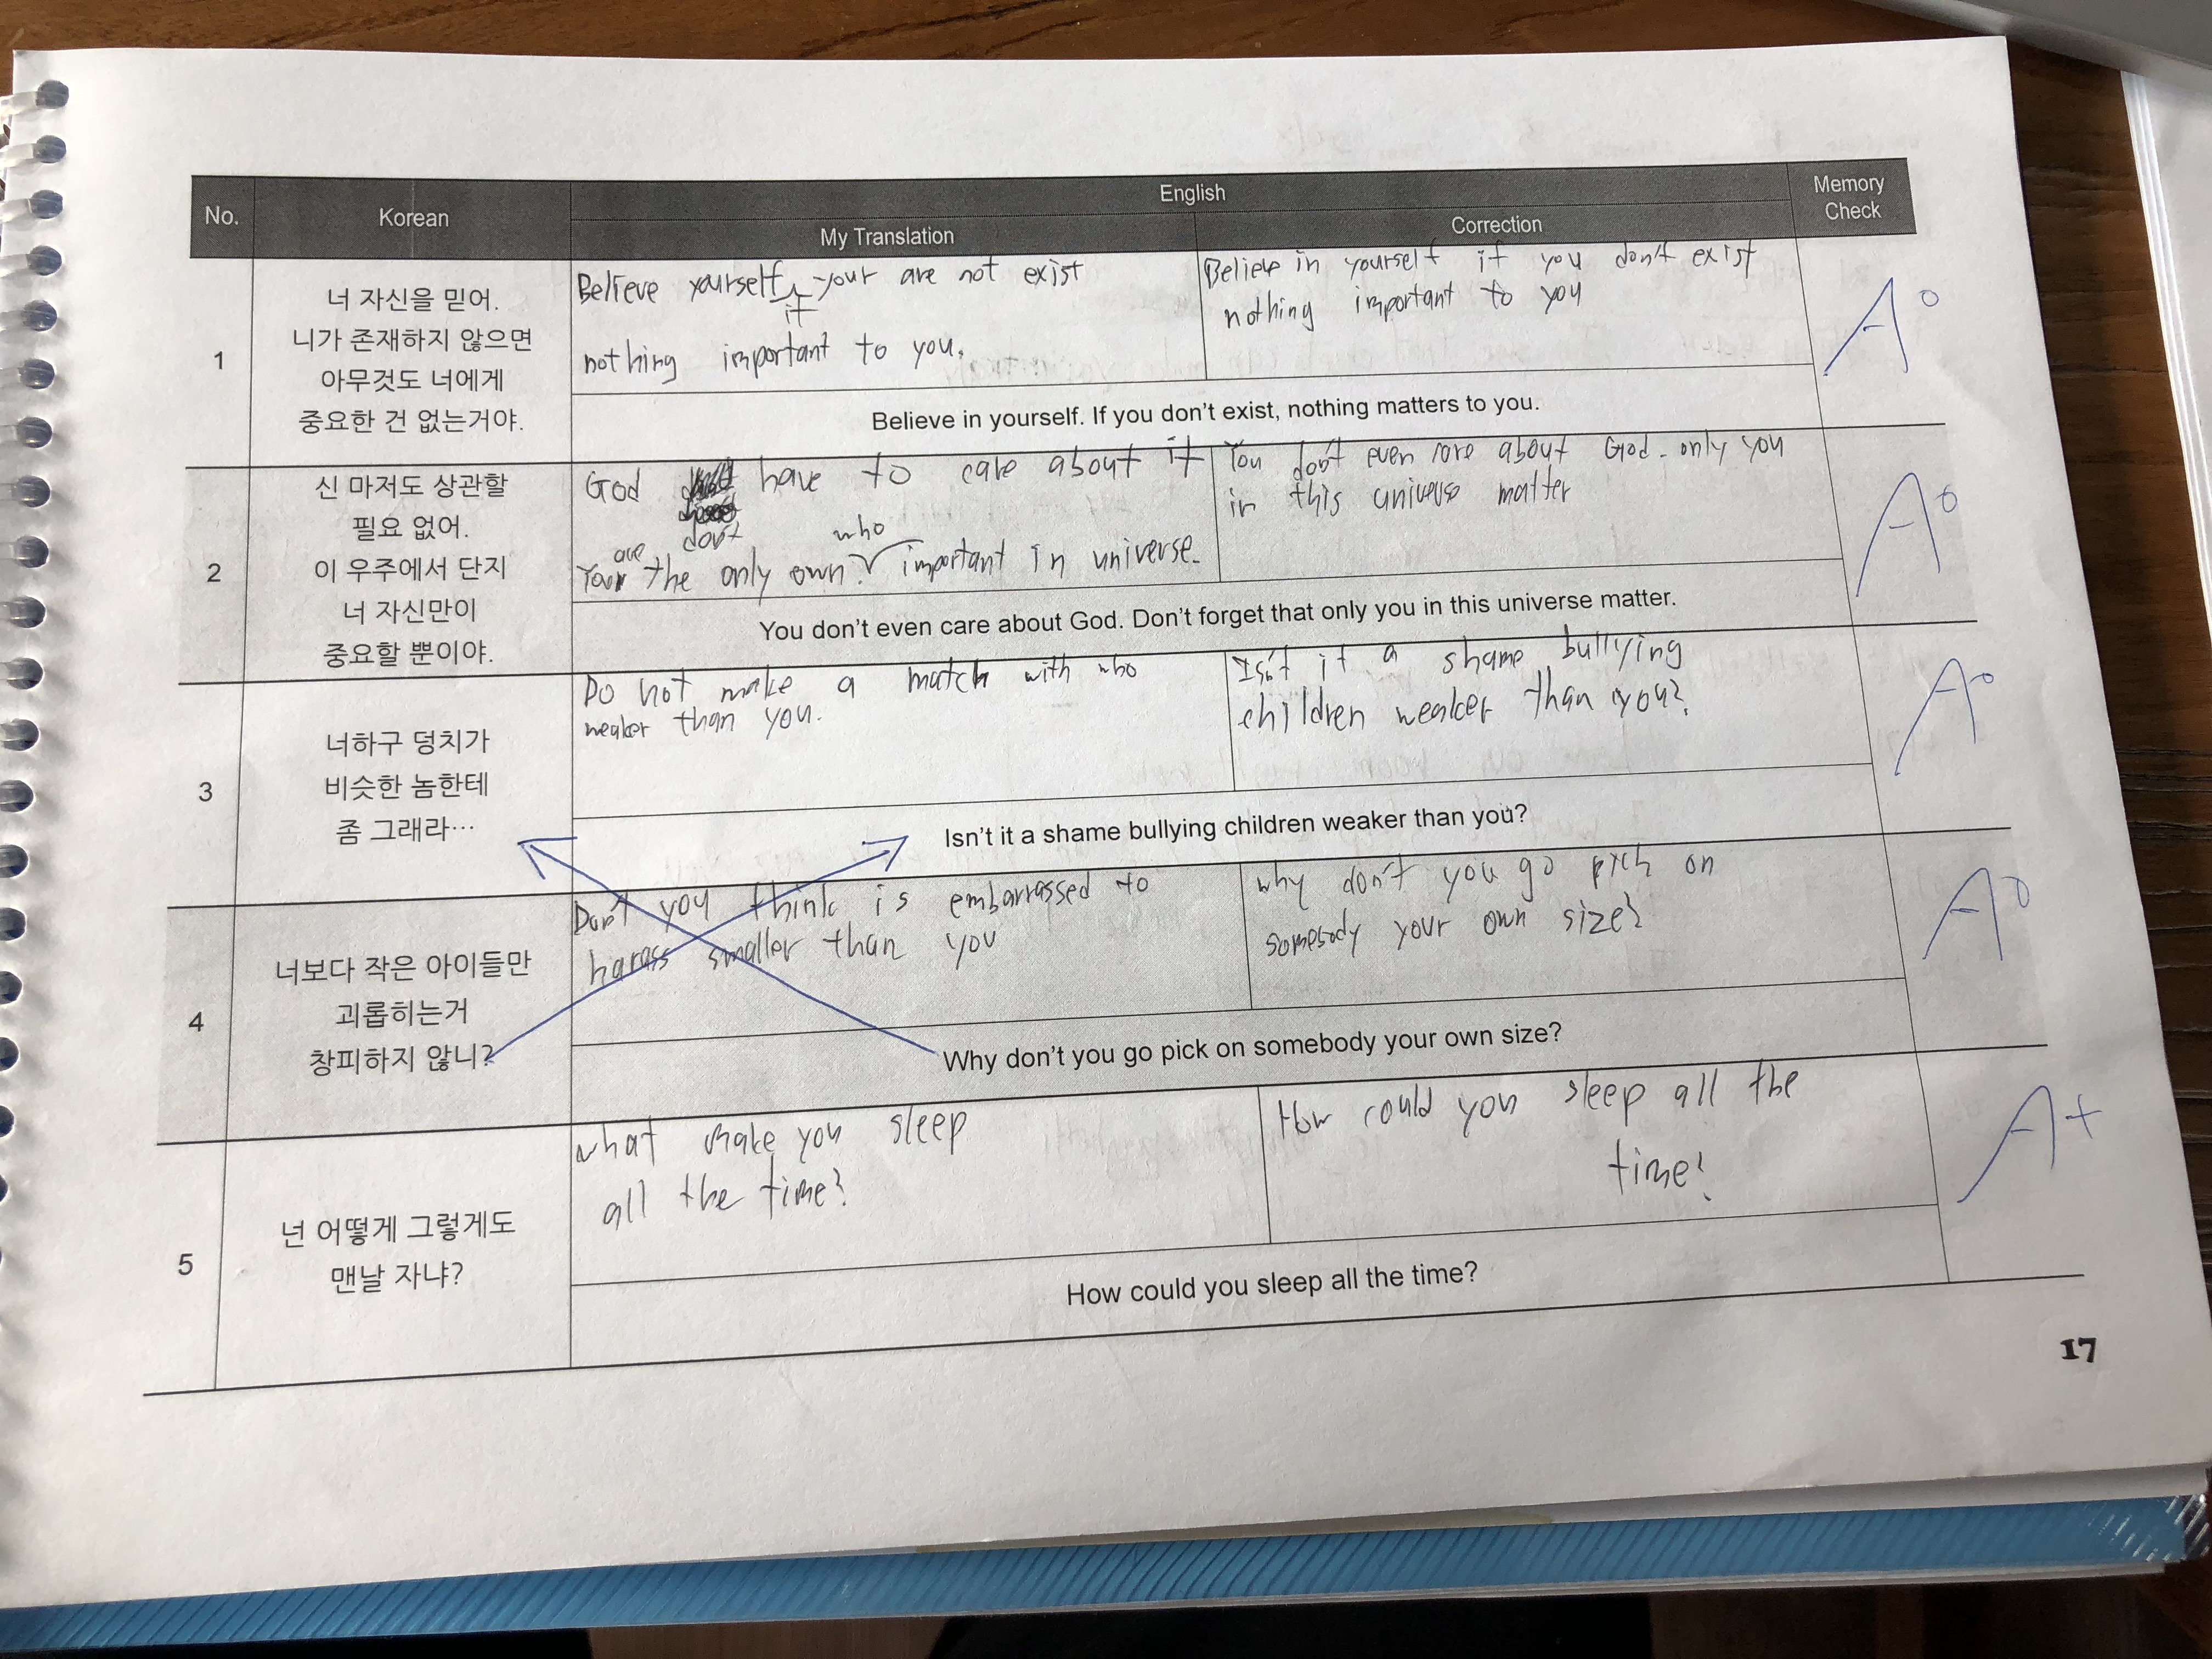 No.
Korean
English
My Translation
Correction
Memory
Check
1
너 자신을 믿어.
니가 존재하지 않으면
아무것도 너에게
중요한 건 없는거야.
Believe yourself, your are not exist
if
nothing important to you.
Believe in yourself if you don't exist
nothing important to you
Believe in yourself. If you don't exist, nothing matters to you.
A°
2
신 마저도 상관할
필요 없어.
이 우주에서 단지
너 자신만이
중요할 뿐이야.
God have to care about it
don't
are who
You the only own? important in universe.
You don't even care about God. only you
in this universe matter
You don't even care about God. Don't forget that only you in this universe matter.
A°
3
너하구 덩치가
비슷한 놈한테
좀 그래라…
Do not make a match with who
weaker than you.
Isn't it a shame bullying
children weaker than you?
Isn't it a shame bullying children weaker than you?
A°
4
너보다 작은 아이들만
괴롭히는거
창피하지 않니?
Don't you think is embarrassed to
harass smaller than you
why don't you go pick on
somebody your own size?
Why don't you go pick on somebody your own size?
A°
5
넌 어떻게 그렇게도
맨날 자냐?
what make you sleep
all the time?
How could you sleep all the
time?
How could you sleep all the time?
A+
17